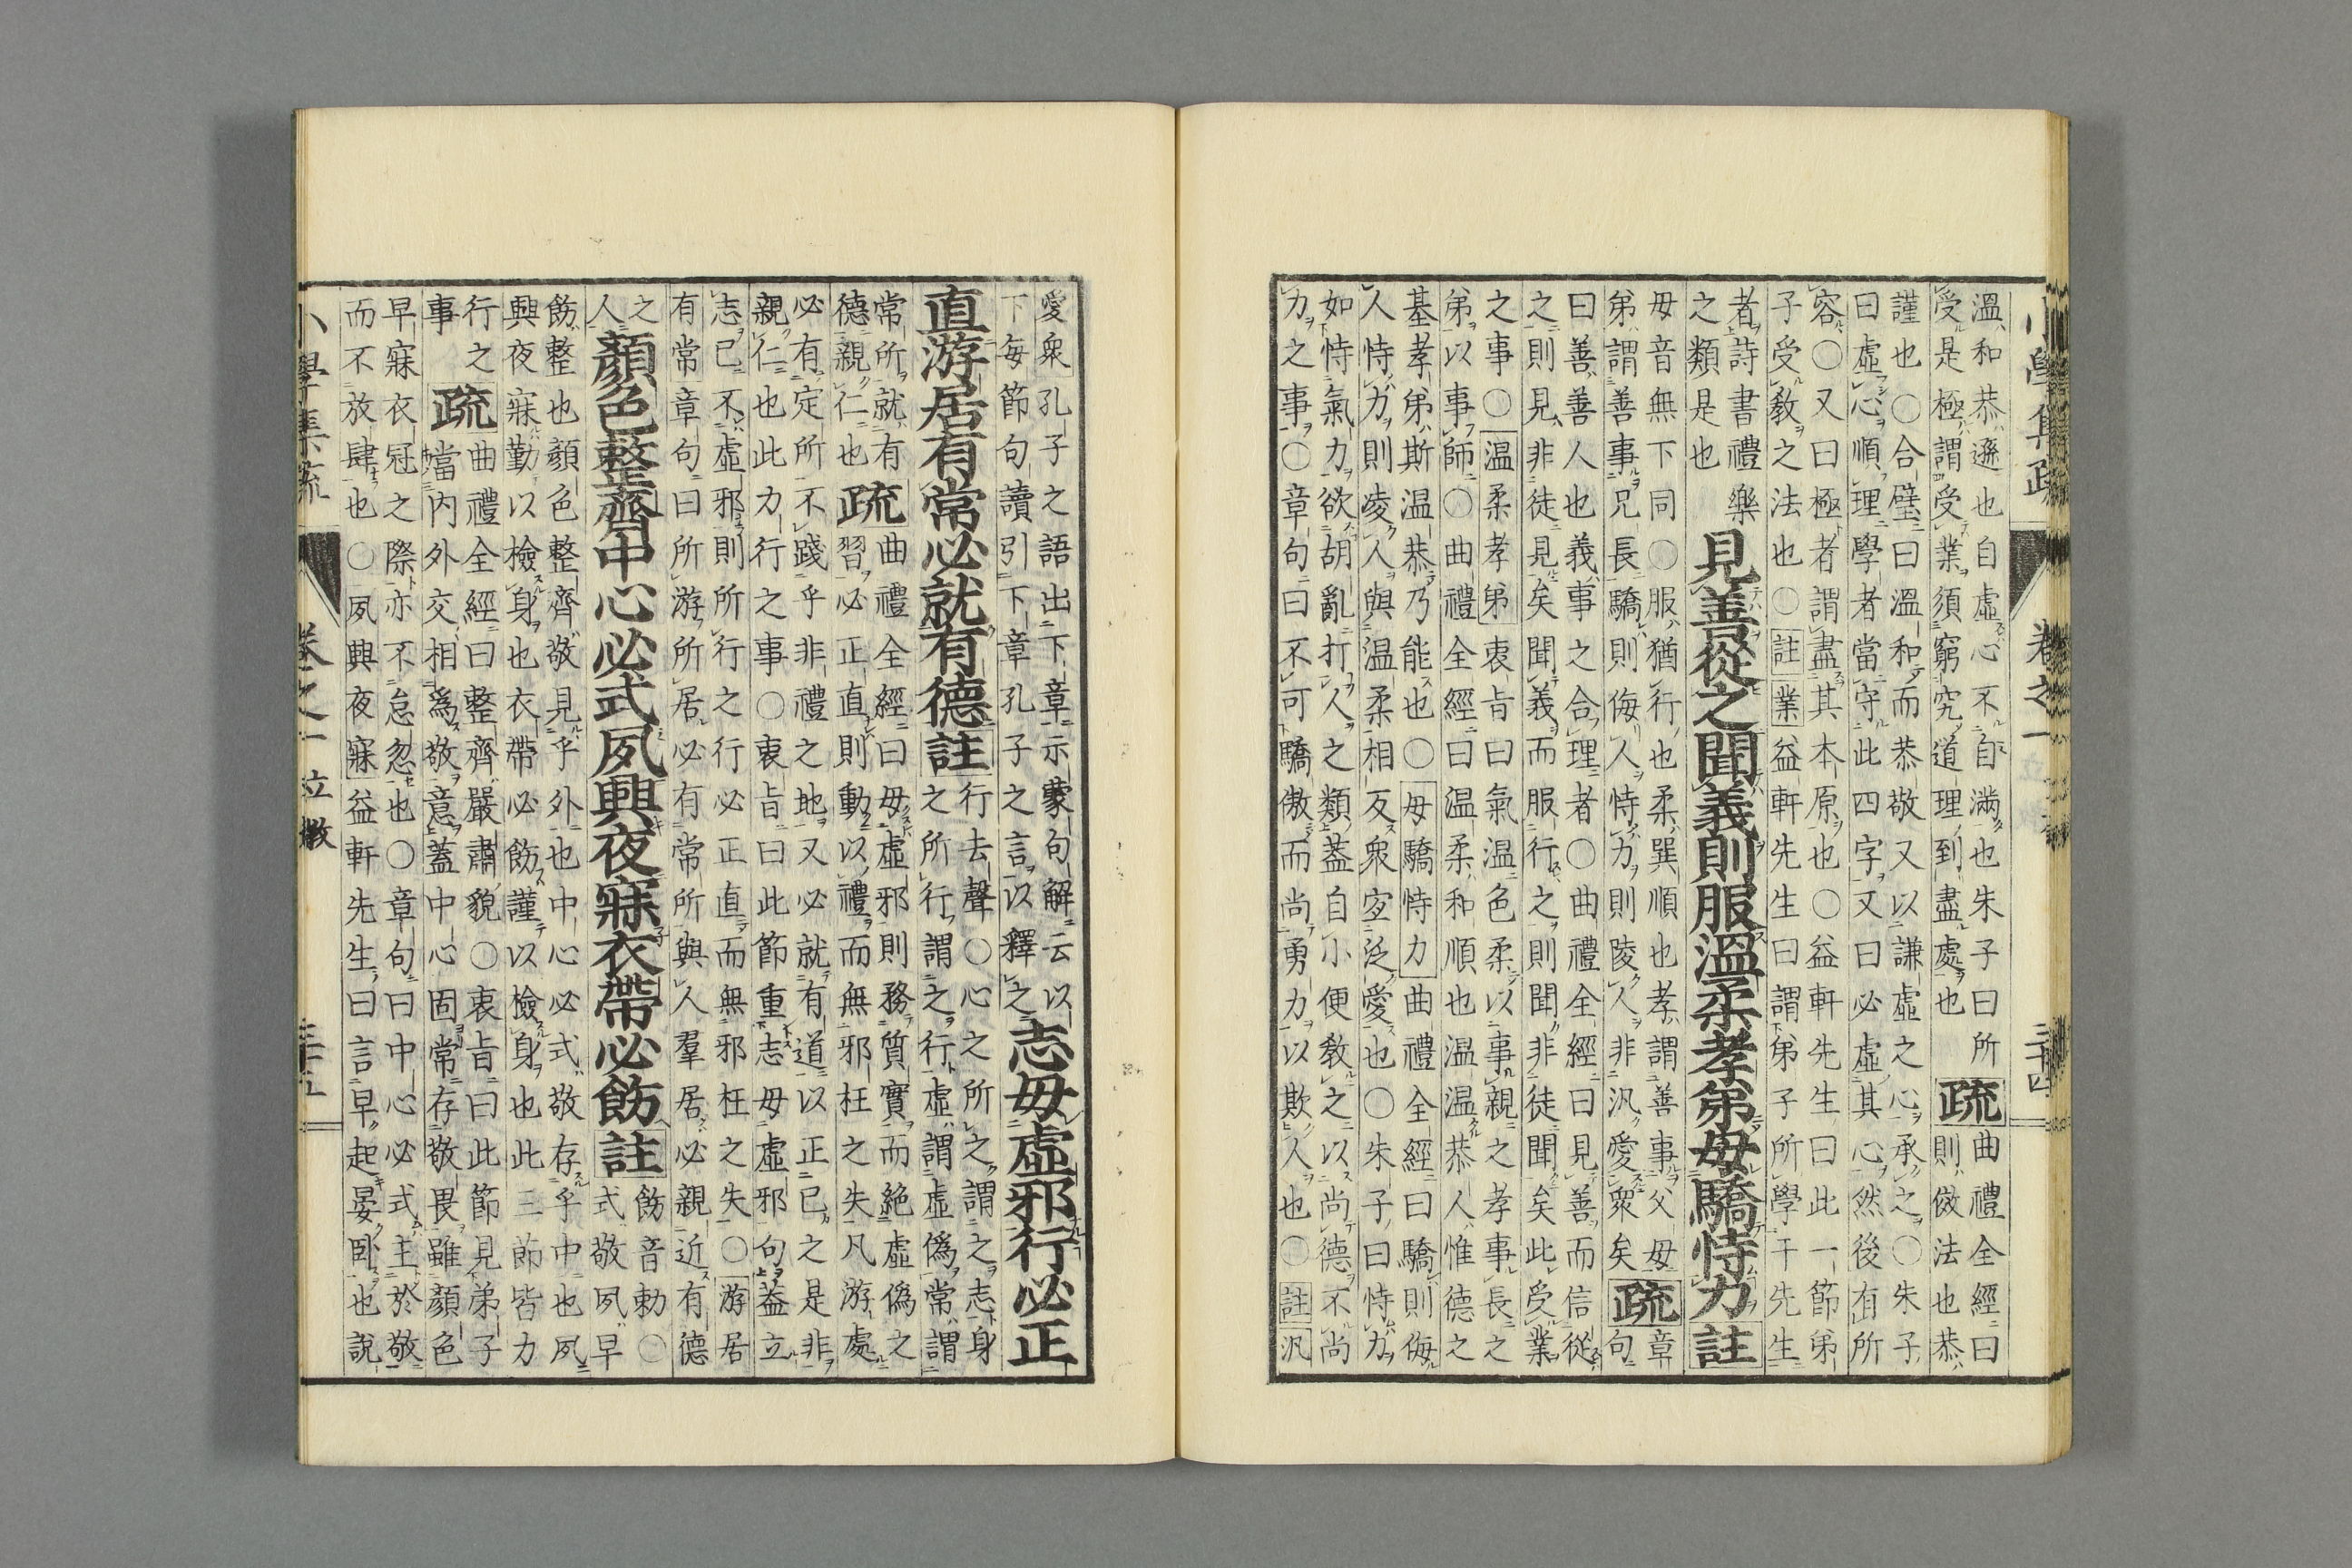 溫和恭遜也自虛心不自滿也朱子曰所
受是極謂受業須窮究道理到盡處也
疏
曲禮全經曰
則倣法也恭
謹也○合璧曰溫和而恭敬又以謙虛之心承之○朱子
曰虛心順理學者當守此四字又曰必虛其心然後有所
容○又曰極者謂盡其本原也○益軒先生曰此一節弟
子受教之法也○註業益軒先生曰謂弟子所學于先生
者詩書禮樂
之類是也
見善從之聞義則服溫柔孝弟毋驕恃力註
毋音無下同○服猶行也柔巽順也孝謂善事父母
弟謂善事兄長驕則侮人恃力則陵人非汎愛衆矣
疏
章
句
曰善善人也義事之合理者○曲禮全經曰見善而信從
之則見非徒見矣聞義而服行之則聞非徒聞矣此受業
之事○温柔孝弟衷旨曰氣温色柔以事親之孝事長之
弟以事師○曲禮全經曰温柔和順也温温恭人惟德之
基孝弟斯温恭乃能也○毋驕恃力曲禮全經曰驕則侮
人恃力則凌人與温柔相反衆宜泛愛也○朱子曰恃力
如恃氣力欲胡亂打人之類蓋自小便敎之以尚德不尚
力之事○章句曰不可驕傲而尚勇力以欺人也○註汎
愛衆孔子之語出下章示蒙句解云以
下每節句讀引下章孔子之言以釋之
志毋虛邪行必正
直游居有常必就有德註
行去聲○心之所之謂之志身
之所行謂之行虛謂虛僞常謂
常所就有
德親仁也
疏
曲禮全經曰毋虛邪則務質實而絶虛僞之
習必正直則動以禮而無邪枉之失凡游處
必有定所不踐乎非禮之地又必就有道以正已之是非
親仁也此力行之事○衷旨曰此節重志毋虛邪句蓋立
志已不虛邪則所行之行必正直而無邪枉之失○游居
有常章句曰所游所居必有常所與人羣居必親近有德
之
人
顏色整齊中心必式夙興夜寐衣帶必飭註
飭音勅○
式敬夙早
飭整也顏色整齊敬見乎外也中心必式敬存乎中也夙
興夜寐勤以檢身也衣帶必飭謹以檢身也此三節皆力
行之
事
疏
曲禮全經曰整齊嚴肅貌○衷旨曰此節見弟子
當內外交相爲敬意蓋中心固常存敬畏雖顏色
早寐衣冠之際亦不怠忽也○章句曰中心必式主於敬
而不放肆也○夙興夜寐益軒先生曰言早起晏卧也說
小學集疏　卷之一　立教　三十五